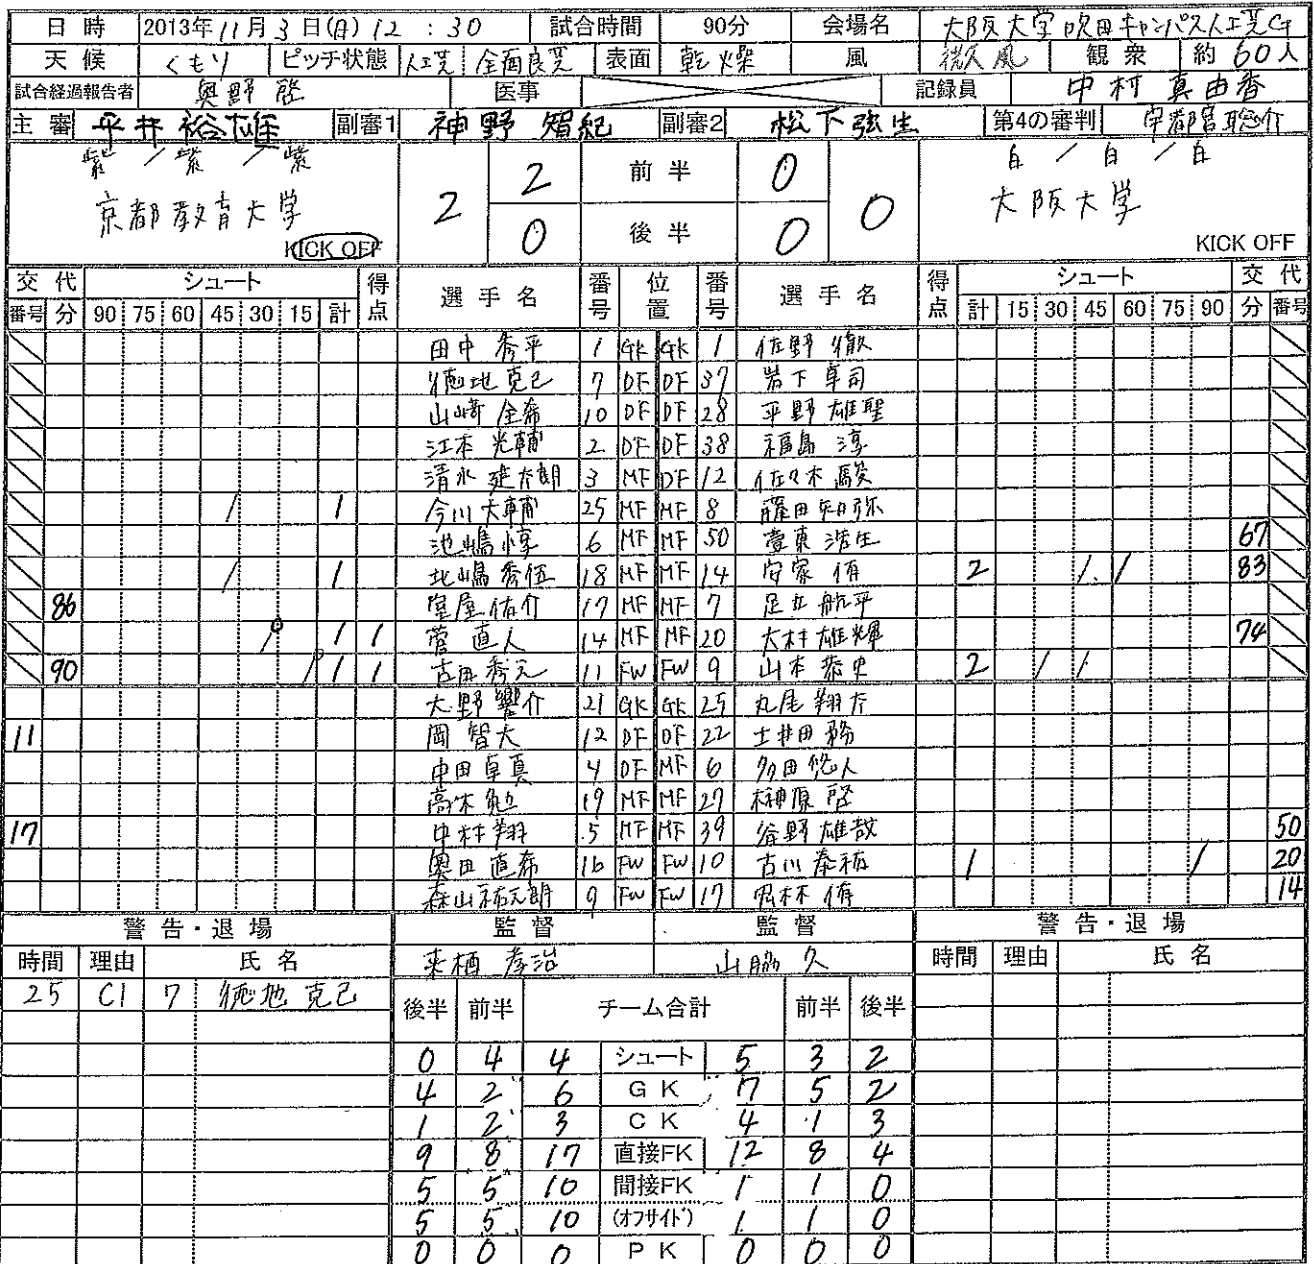 日時 2013年11月3日(日)12:30 試合時間 90分 会場名 大阪大学吹田キャンパス人工芝G
天候 くもり ピッチ状態 人工芝 全面良芝 表面 乾燥 風 微風 観衆 約60人
試合経過報告者 奥野 啓 医事 記録員 中村 真由香
主審 平井裕雄 副審1 神野 智紀 副審2 松下弦生 第4の審判 宇都宮聡介
紫/紫/紫 2 2 前半 0 0 白/白/白
京都教育大学 0 後半 0 大阪大学
KICK OFF KICK OFF
交代 シュート 得点 選手名 番号 位置 番号 選手名 得点 シュート 交代
番号 分 90 75 60 45 30 15 計 計 15 30 45 60 75 90 分 番号
田中 秀平 1 GK GK 1 佐野 徹
徳地 克己 7 DF DF 37 岩下 卓司
山﨑 全希 10 DF DF 28 平野 雄聖
江本 光輔 2 DF DF 38 福島 淳
清水 建太朗 3 MF DF 12 佐々木
/ 1 今川 大輔 25 MF MF 8 藤田 知弥
池嶋 惇 6 MF MF 50 浩生 67
/ 1 北嶋 秀伍 18 MF MF 14 安家 侑 2 / / 83
86 室屋 佑介 17 MF MF 7 足立 航平
/ 1 1 菅 直人 14 MF MF 20 大村 雄輝 74
90 / 1 1 古田 秀元 11 FW FW 9 山本 恭史 2 / /
大野 響介 21 GK GK 25 丸尾 翔太
11 岡 智大 12 DF DF 22 土井田 務
中田 卓真 4 DF MF 6 多田 悠人
高木 勉 19 MF MF 27 榊原 啓
17 中村 翔 5 MF MF 39 谷野 雄哉 50
奥田 直希 16 FW FW 10 古川 泰祐 1 / 20
森山 祐太朗 9 FW FW 17 侑 14
警告・退場 監督 監督 警告・退場
時間 理由 氏名 来栖 孝治 山脇 久 時間 理由 氏名
25 C1 7 徳地 克己 後半 前半 チーム合計 前半 後半
0 4 4 シュート 5 3 2
4 2 6 GK 7 5 2
1 2 3 CK 4 1 3
9 8 17 直接FK 12 8 4
5 5 10 間接FK 1 1 0
5 5 10 (オフサイド) 1 1 0
0 0 0 PK 0 0 0